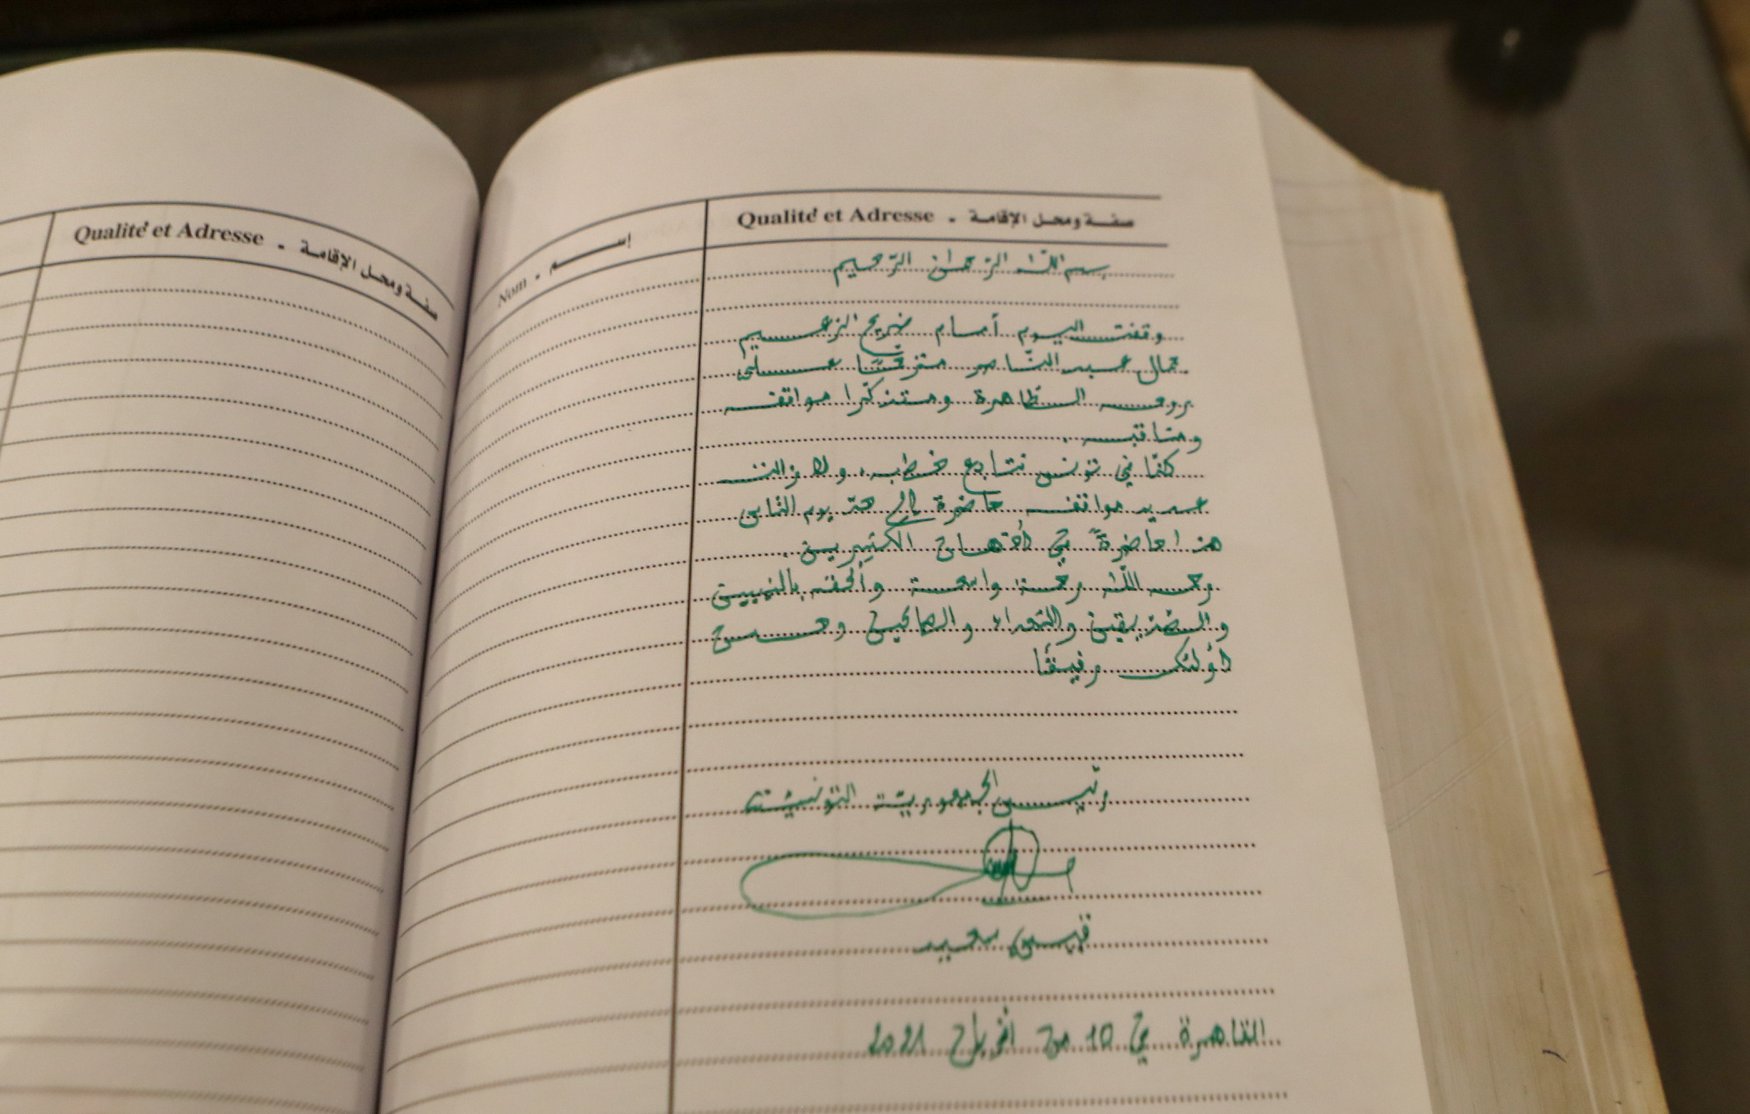 Qualité et Adresse - صفة ومحل الإقامة
Nom - إسم
Qualité et Adresse - صفة ومحل الإقامة
بسم اللّه الرّحمان الرّحيم
وقفت اليوم أمام ضريح الزعيم
جمال عبد النّاصر مترحّما على
روحه الطّاهرة ومتذكّرا مواقفه
ومناقبه.
كنّا في تونس نتابع خطبه، ولا زالت
عديد مواقفه حاضرة إلى حدّ يوم النّاس
هذا حاضرةً في أذهان الكثيرين.
رحمه اللّه رحمة واسعة وألحقه بالنبيين
والصّدّيقين والشهداء والصالحين وحسن
أولئك رفيقًا
رئيس الجمهوريّة التونسيّة
قيس سعيد
القاهرة في 10 من أفريل 2021